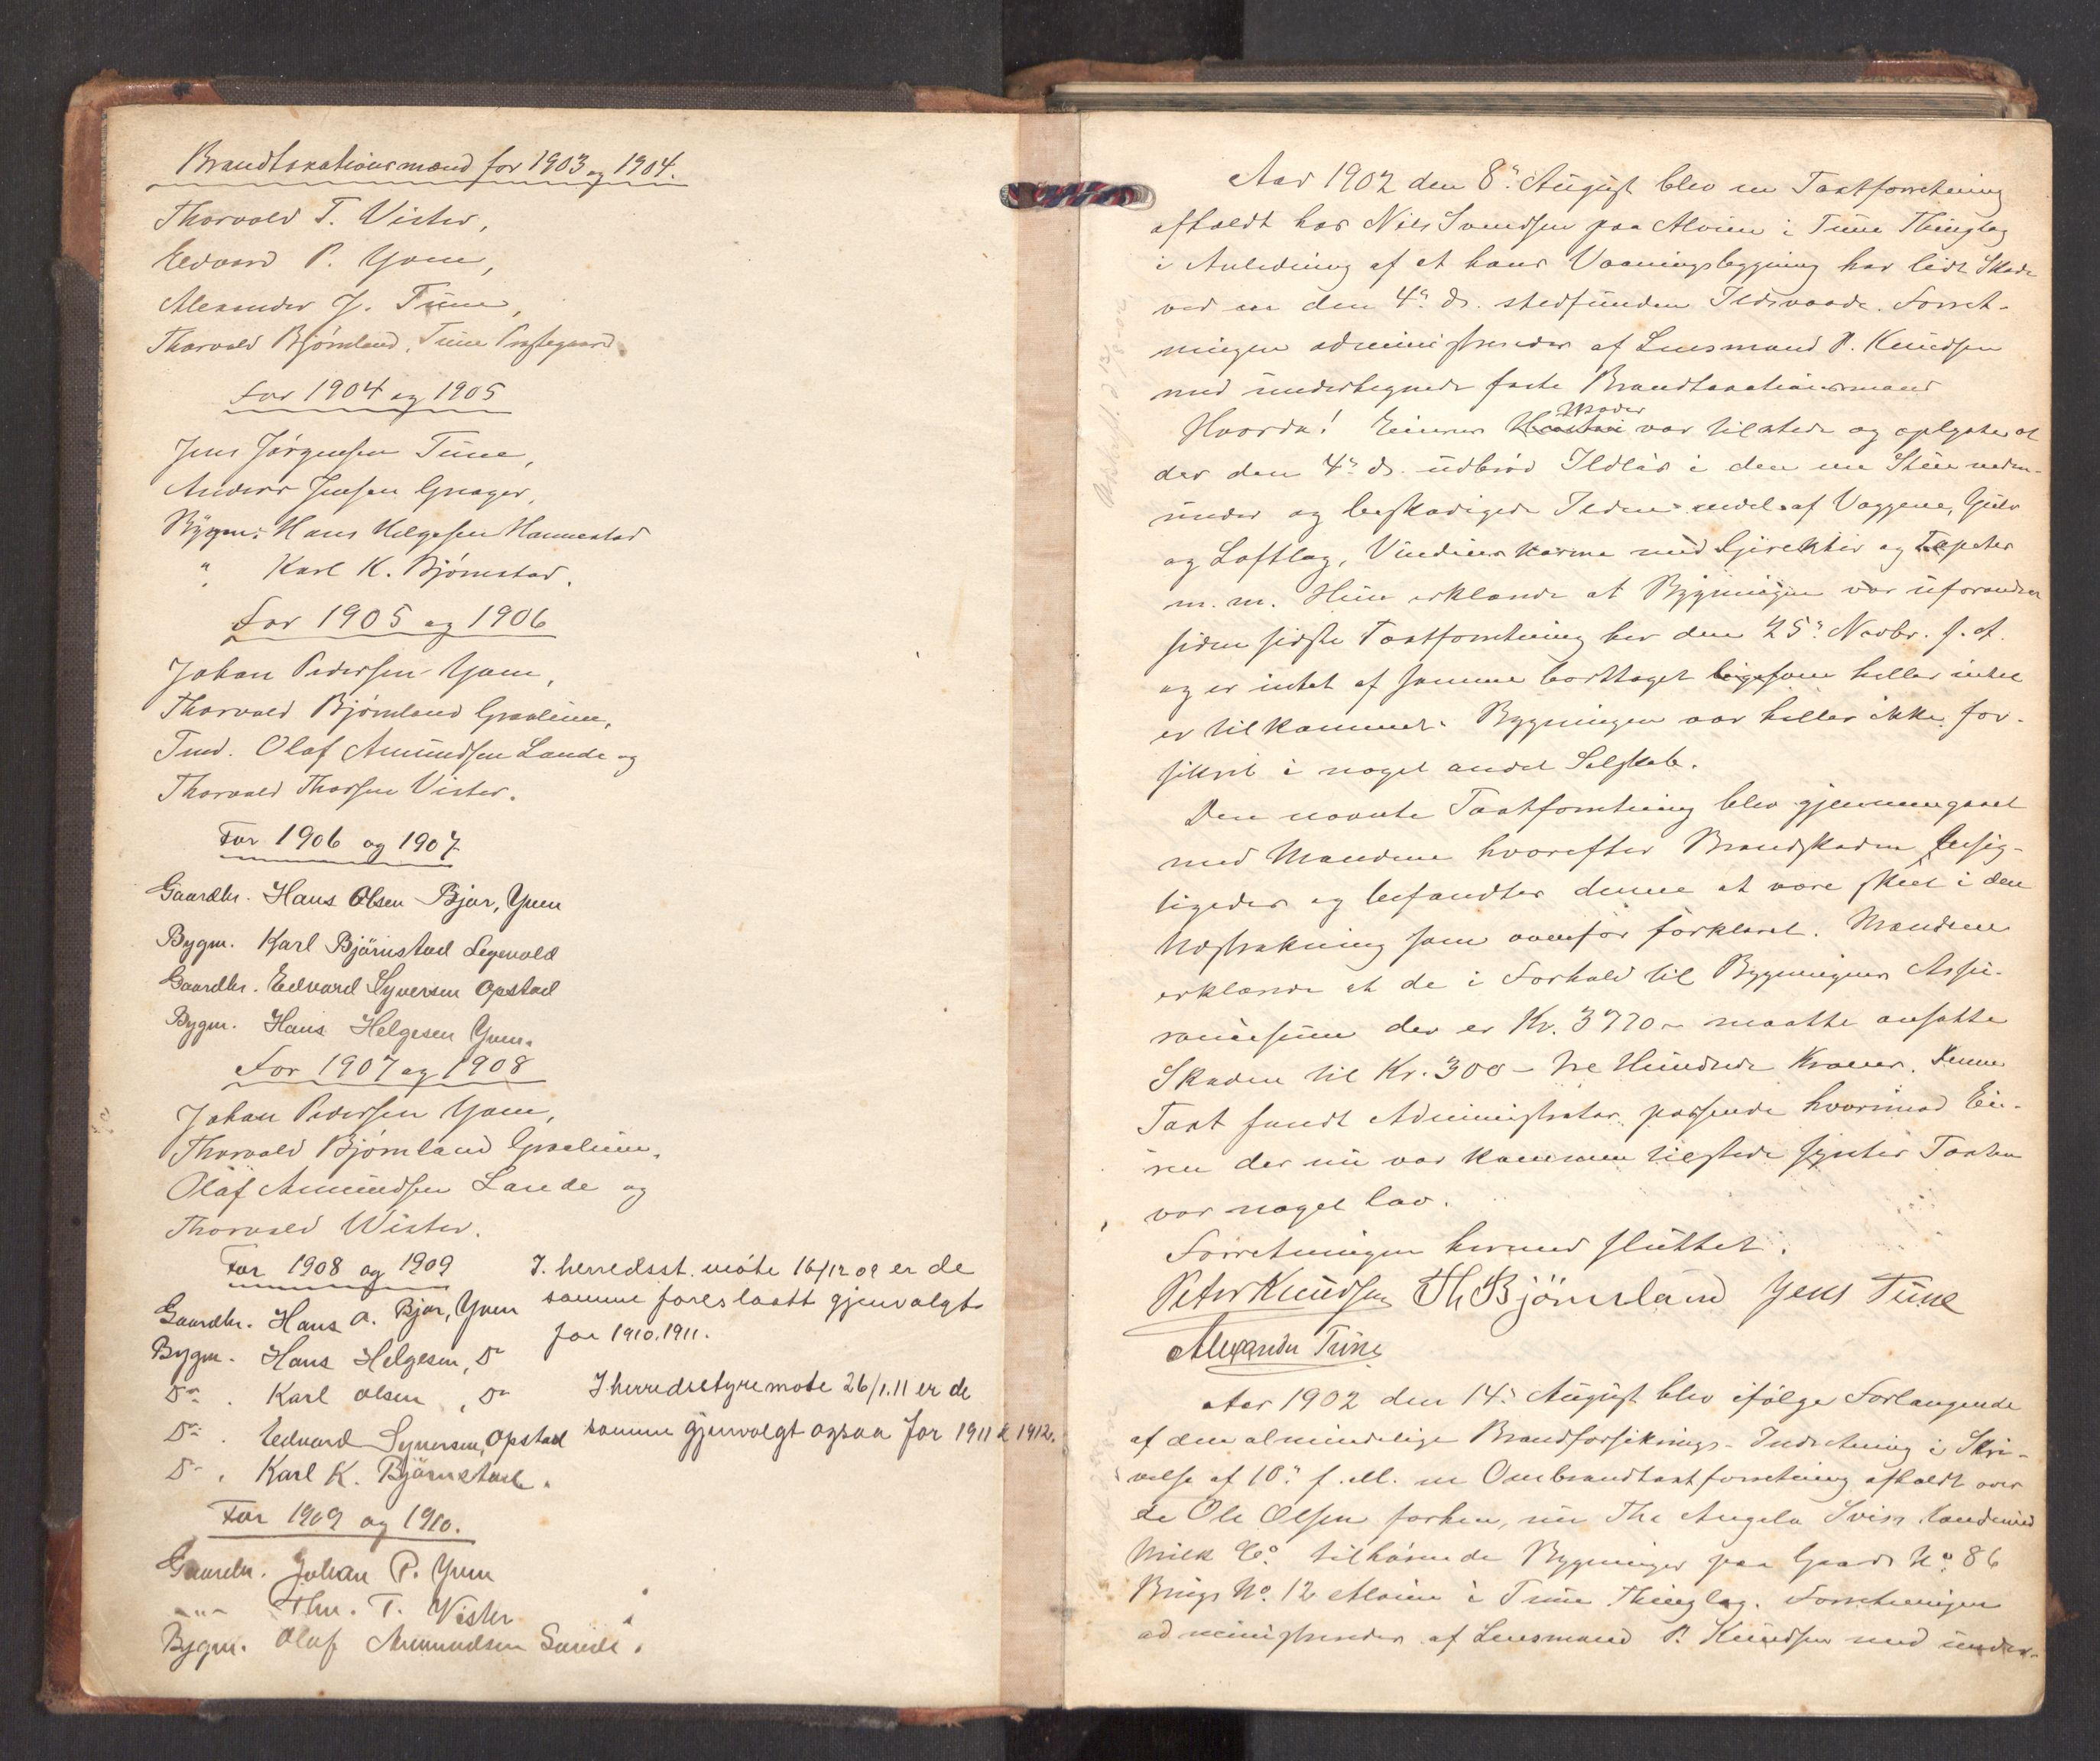 Brandtaxationsmænd for 1903 og 1904.
Thorvald T. Vister,
Edvard P. Yven,
Alexander J. Tune,
Thorvald Bjørnland, Tune Præstegaard
For 1904 og 1905
Jens Jørgensen Tune,
Anders Jensen Greager,
Bygm: Hans Helgesen Hannestad
" Karl K. Bjørnstad.
For 1905 og 1906
Johan Pedersen Yven,
Thorvald Bjørnland Graalum,
Tmd. Olaf Amundsen Lande og
Thorvald Thorsen Vister.
For 1906 og 1907
Gaardbr. Hans Olsen Bjør, Yven
Bygm. Karl Bjørnstad
Gaardbr. Edvard Syversen Opstad
Bygm. Hans Helgesen Yven.
For 1907 og 1908
Johan Pedersen Yven,
Thorvald Bjørnland Graalum,
Olaf Amundsen Lande og
Thorvald Wister.
For 1908 og 1909
Gaardbr. Hans O. Bjør, Yven
Bygm. Hans Helgesen, Do
Do. Karl Olsen, Do
Do. Edvard Syversen, Opstad
Do. Karl K. Bjørnstad.
I herredsst. møte 16/12 09 er de
samme foreslaatt gjenvalgt
for 1910.1911.
I herredsstyremøte 26/1.11 er de
samme gjenvalgt ogsaa for 1911 & 1912.
For 1909 og 1910.
Gaardbr. Johan P. Yven
-"- Thv. T. Vister
Bygm. Olaf Amundsen Lande.
Aar 1902 den 8de August blev en Taxtforretning
afholdt hos Nils Svendsen paa Alvim i Tune Thinglag
i Anledning af at hans Vaaningsbygning har lidt Skade
ved en den 4de ds. stedfunden Ildsvaade. Forret-
ningen administreredes af Lensmand P. Knudsen
med undertegnede faste Brandtaxationsmænd
Hvorda! Eierens Hustru Moder var tilstede og oplyste at
der den 4de ds. udbrød Ildløs i den ene Stue neden-
under og beskadigede Ilden endel af Væggene, Gulv
og Loftlag, Vinduerskarme med Gjerekter og Tapeter
m. m. Hun erklærede at Bygningen var uforandret
siden sidste Taxtforretning her den 25de Novbr. f. A.
og er intet af samme borttaget ligesom heller intet
er tilkommet. Bygningen var heller ikke for-
sikret i noget andet Selskab.
Den nævnte Taxtforretning blev gjennemgaaet
med Mændene hvorefter Brandskaden besig-
tigedes og befandtes denne at være skeet i den
Udstrækning som ovenfor forklaret. Mændene
erklærede at de i Forhold til Bygningens Assu-
rancesum der er Kr. 3770 - maatte ansætte
Skaden til Kr. 300 - tre Hundrede Kroner. Denne
Taxt fandt Administrator passende hvorimod Ei-
eren der nu var kommen tilstede syntes Taxten
var noget lav.
Forretningen hermed sluttet.
Peter Knudsen Th Bjørnland Jens Tune
Alexander Tune
Aar 1902 den 14de August blev ifølge Forlangende
af den almindelige Brandforsikrings-Indretning i Skri-
velse af 10de f. M. en Ombrandtaxtforretning afholdt over
de Ole Olsen forhen, nu The Anglo Swiss Condensed
Milk Co. tilhørende Bygninger paa Gaards No. 86
Brugs No. 12 Alvim i Tune Thinglag. Forretningen
administreredes af Lensmand P. Knudsen med under-